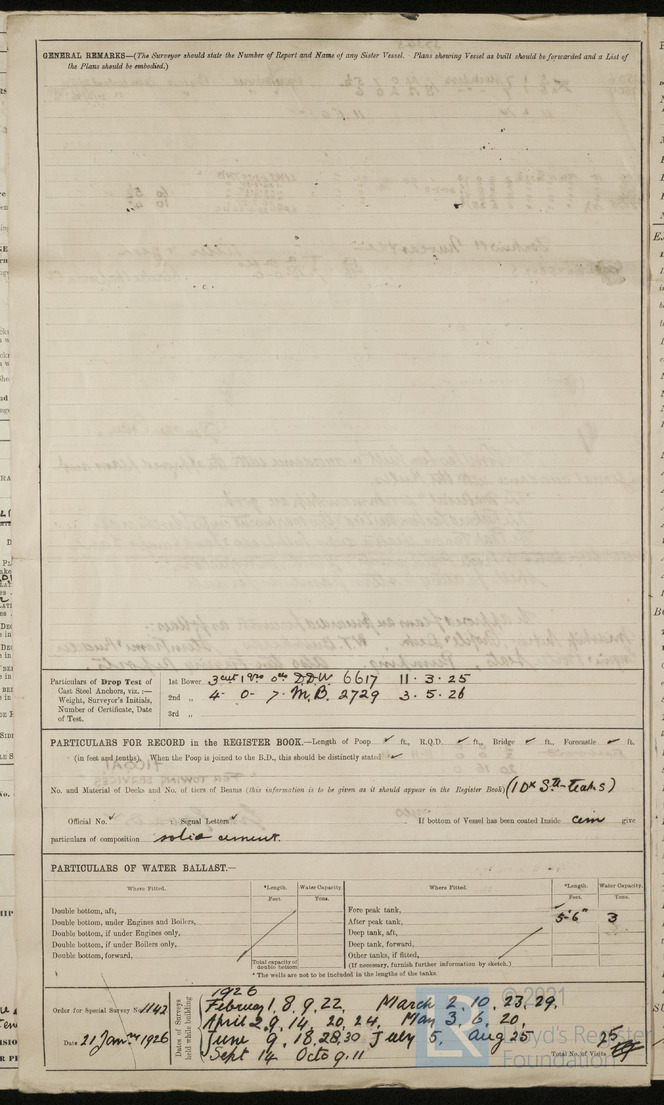 GENERAL REMARKS—(The Surveyor should state the Number of Report and Name of any Sister Vessel. Plans shewing Vessel as built should be forwarded and a List of
the Plans should be embodied.)
Particulars of Drop Test of
Cast Steel Anchors, viz.:—
Weight, Surveyor's Initials,
Number of Certificate, Date
of Test.
1st Bower 3 cwt 1 qrs 0 lbs D.D.W. 6617 11.3.25
2nd „ 4 - 0 - 7 M.B. 2729 3.5.26
3rd „
PARTICULARS FOR RECORD in the REGISTER BOOK.—Length of Poop ✓ ft., R.Q.D. ✓ ft., Bridge ✓ ft., Forecastle ✓ ft.
(in feet and tenths). When the Poop is joined to the B.D., this should be distinctly stated ✓
No. and Material of Decks and No. of tiers of Beams (this information is to be given as it should appear in the Register Book) (1 Dk Stl-teak s)
Official No. ✓ ; Signal Letters ✓ If bottom of Vessel has been coated Inside cem give
particulars of composition solid cement.
PARTICULARS OF WATER BALLAST.—
Where Fitted. *Length. Water Capacity. Where Fitted. *Length. Water Capacity.
Feet. Tons. Feet. Tons.
Double bottom, aft, Fore peak tank,
Double bottom, under Engines and Boilers, After peak tank, 5'-6" 3
Double bottom, if under Engines only, Deep tank, aft,
Double bottom, if under Boilers only, Deep tank, forward,
Double bottom, forward, Other tanks, if fitted,
Total capacity of double bottom (If necessary, furnish further information by sketch.)
* The wells are not to be included in the lengths of the tanks.
Order for Special Survey No. 1142
Date 21 Janry 1926
Dates of Surveys held while building
1926
February 1, 8, 9, 22, March 2, 10, 23, 29,
April 2, 9, 14, 20, 24, May 3, 6, 20,
June 9, 18, 28, 30 July 5, Aug 25
Sept 14 Octo 9, 11
Total No. of Visits 25
© 2021
LR
Lloyd's Register
Foundation